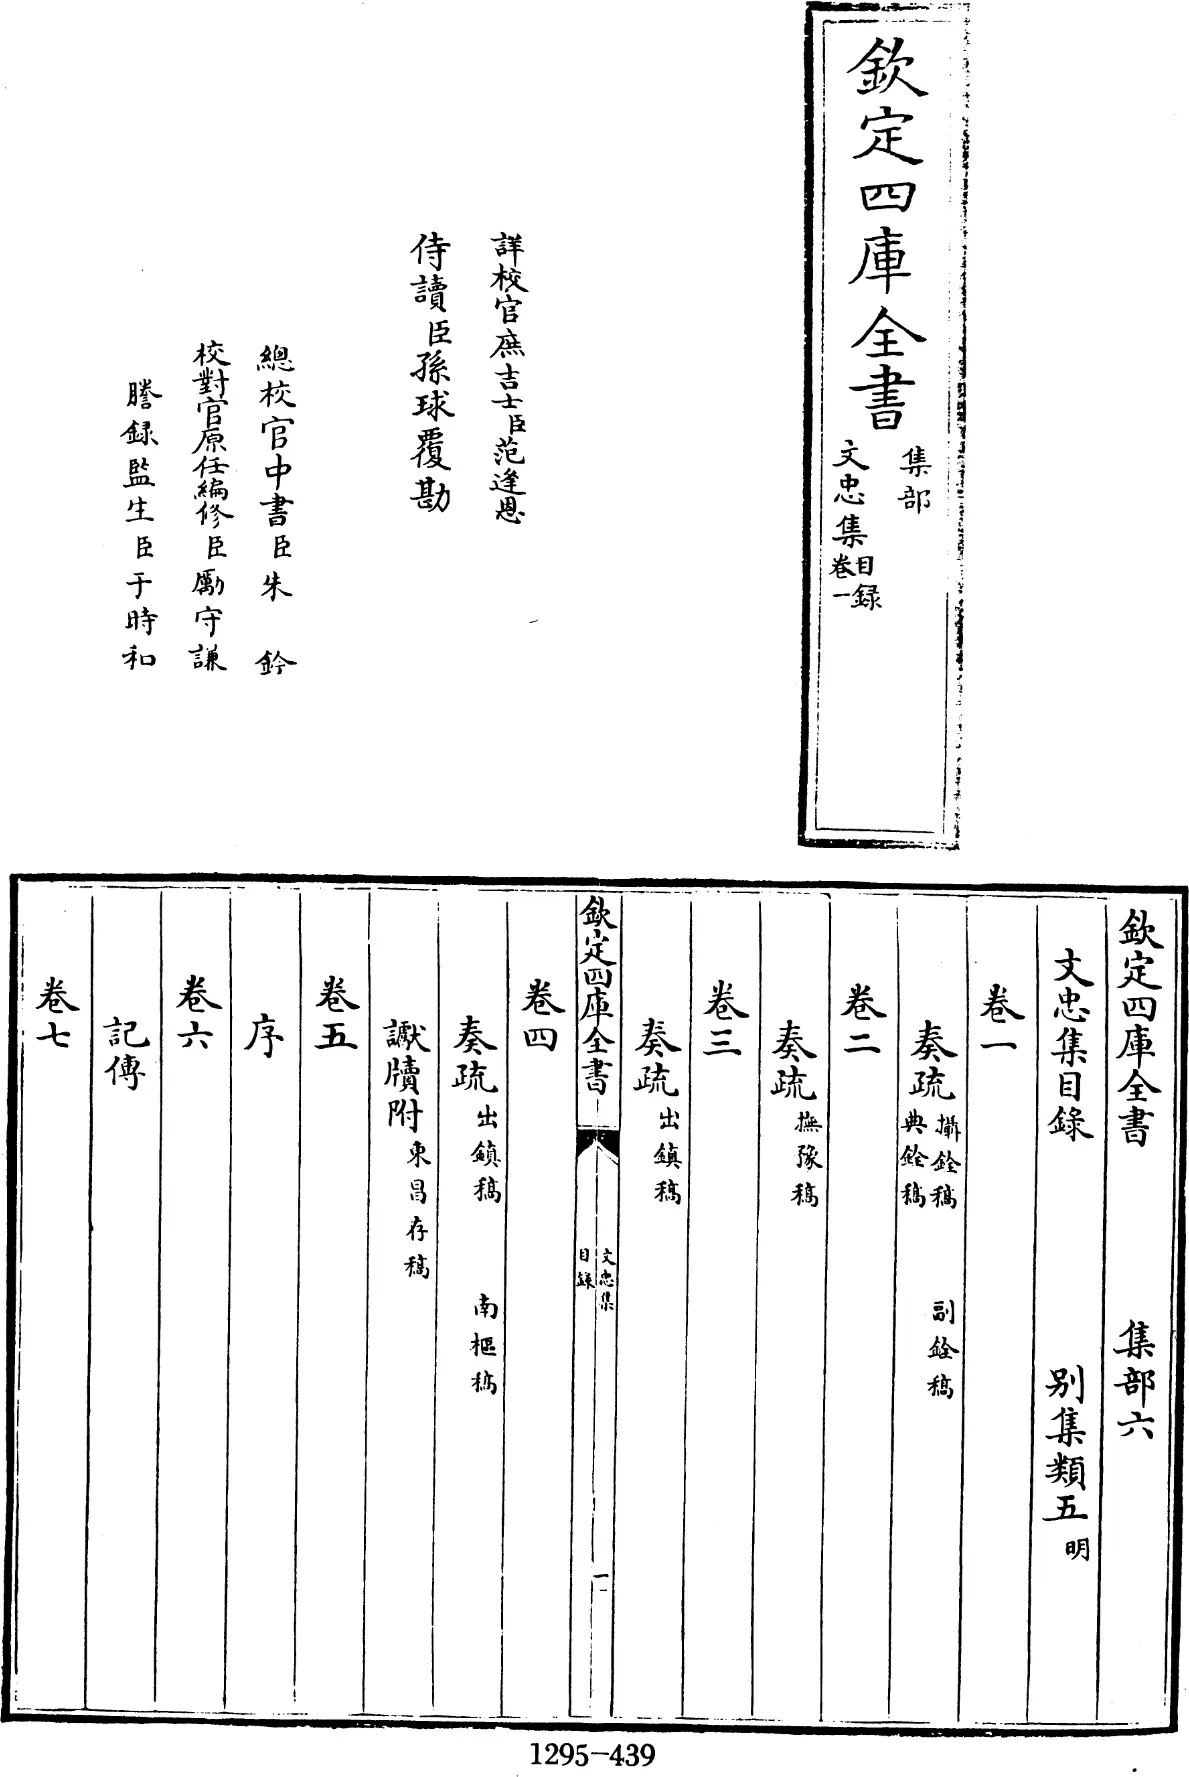 欽定四庫全書
集部
文忠集
目錄
卷一
詳校官庶吉士臣范逢恩
侍讀臣孫球覆勘
總校官中書臣朱鈐
校對官原任編修臣勵守謙
謄錄監生臣于時和
欽定四庫全書 集部六
文忠集目錄 別集類五明
卷一
奏疏攝銓稿 副銓稿
典銓稿
卷二
奏疏撫豫稿
卷三
奏疏出鎮稿
欽定四庫全書
文忠集
目錄
一
卷四
奏疏出鎮稿 南樞稿
讞牘附東昌存稿
卷五
序
卷六
記傳
卷七
1295-439